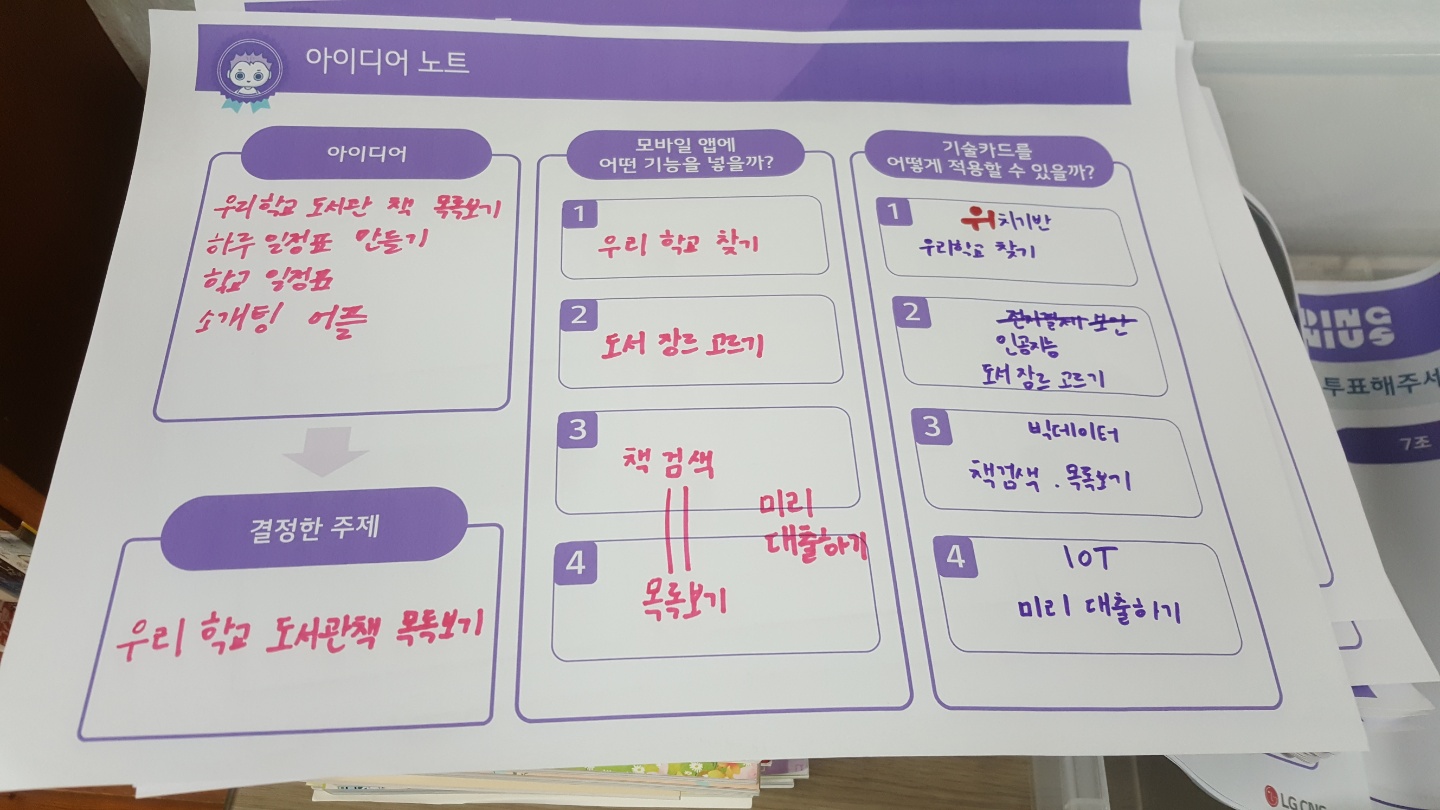 아이디어 노트
아이디어
우리학교 도서관 책 목록보기
하루 일정표 만들기
학교 일정표
소개팅 어플
결정한 주제
우리 학교 도서관책 목록보기
모바일 앱에
어떤 기능을 넣을까?
1
우리 학교 찾기
2
도서 장르 고르기
3
책 검색
미리
대출하기
4
목록보기
기술카드를
어떻게 적용할 수 있을까?
1
위치기반
우리학교 찾기
2
전자결제 보안
인공지능
도서 장르 고르기
3
빅데이터
책검색 . 목록보기
4
IOT
미리 대출하기
DING
NIUS
투표해주세
7조
LG CNS